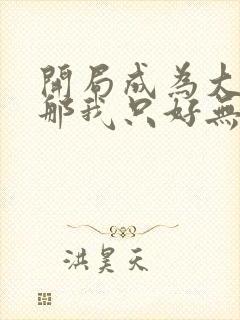 開局成為大
那我只好無
洪昊天